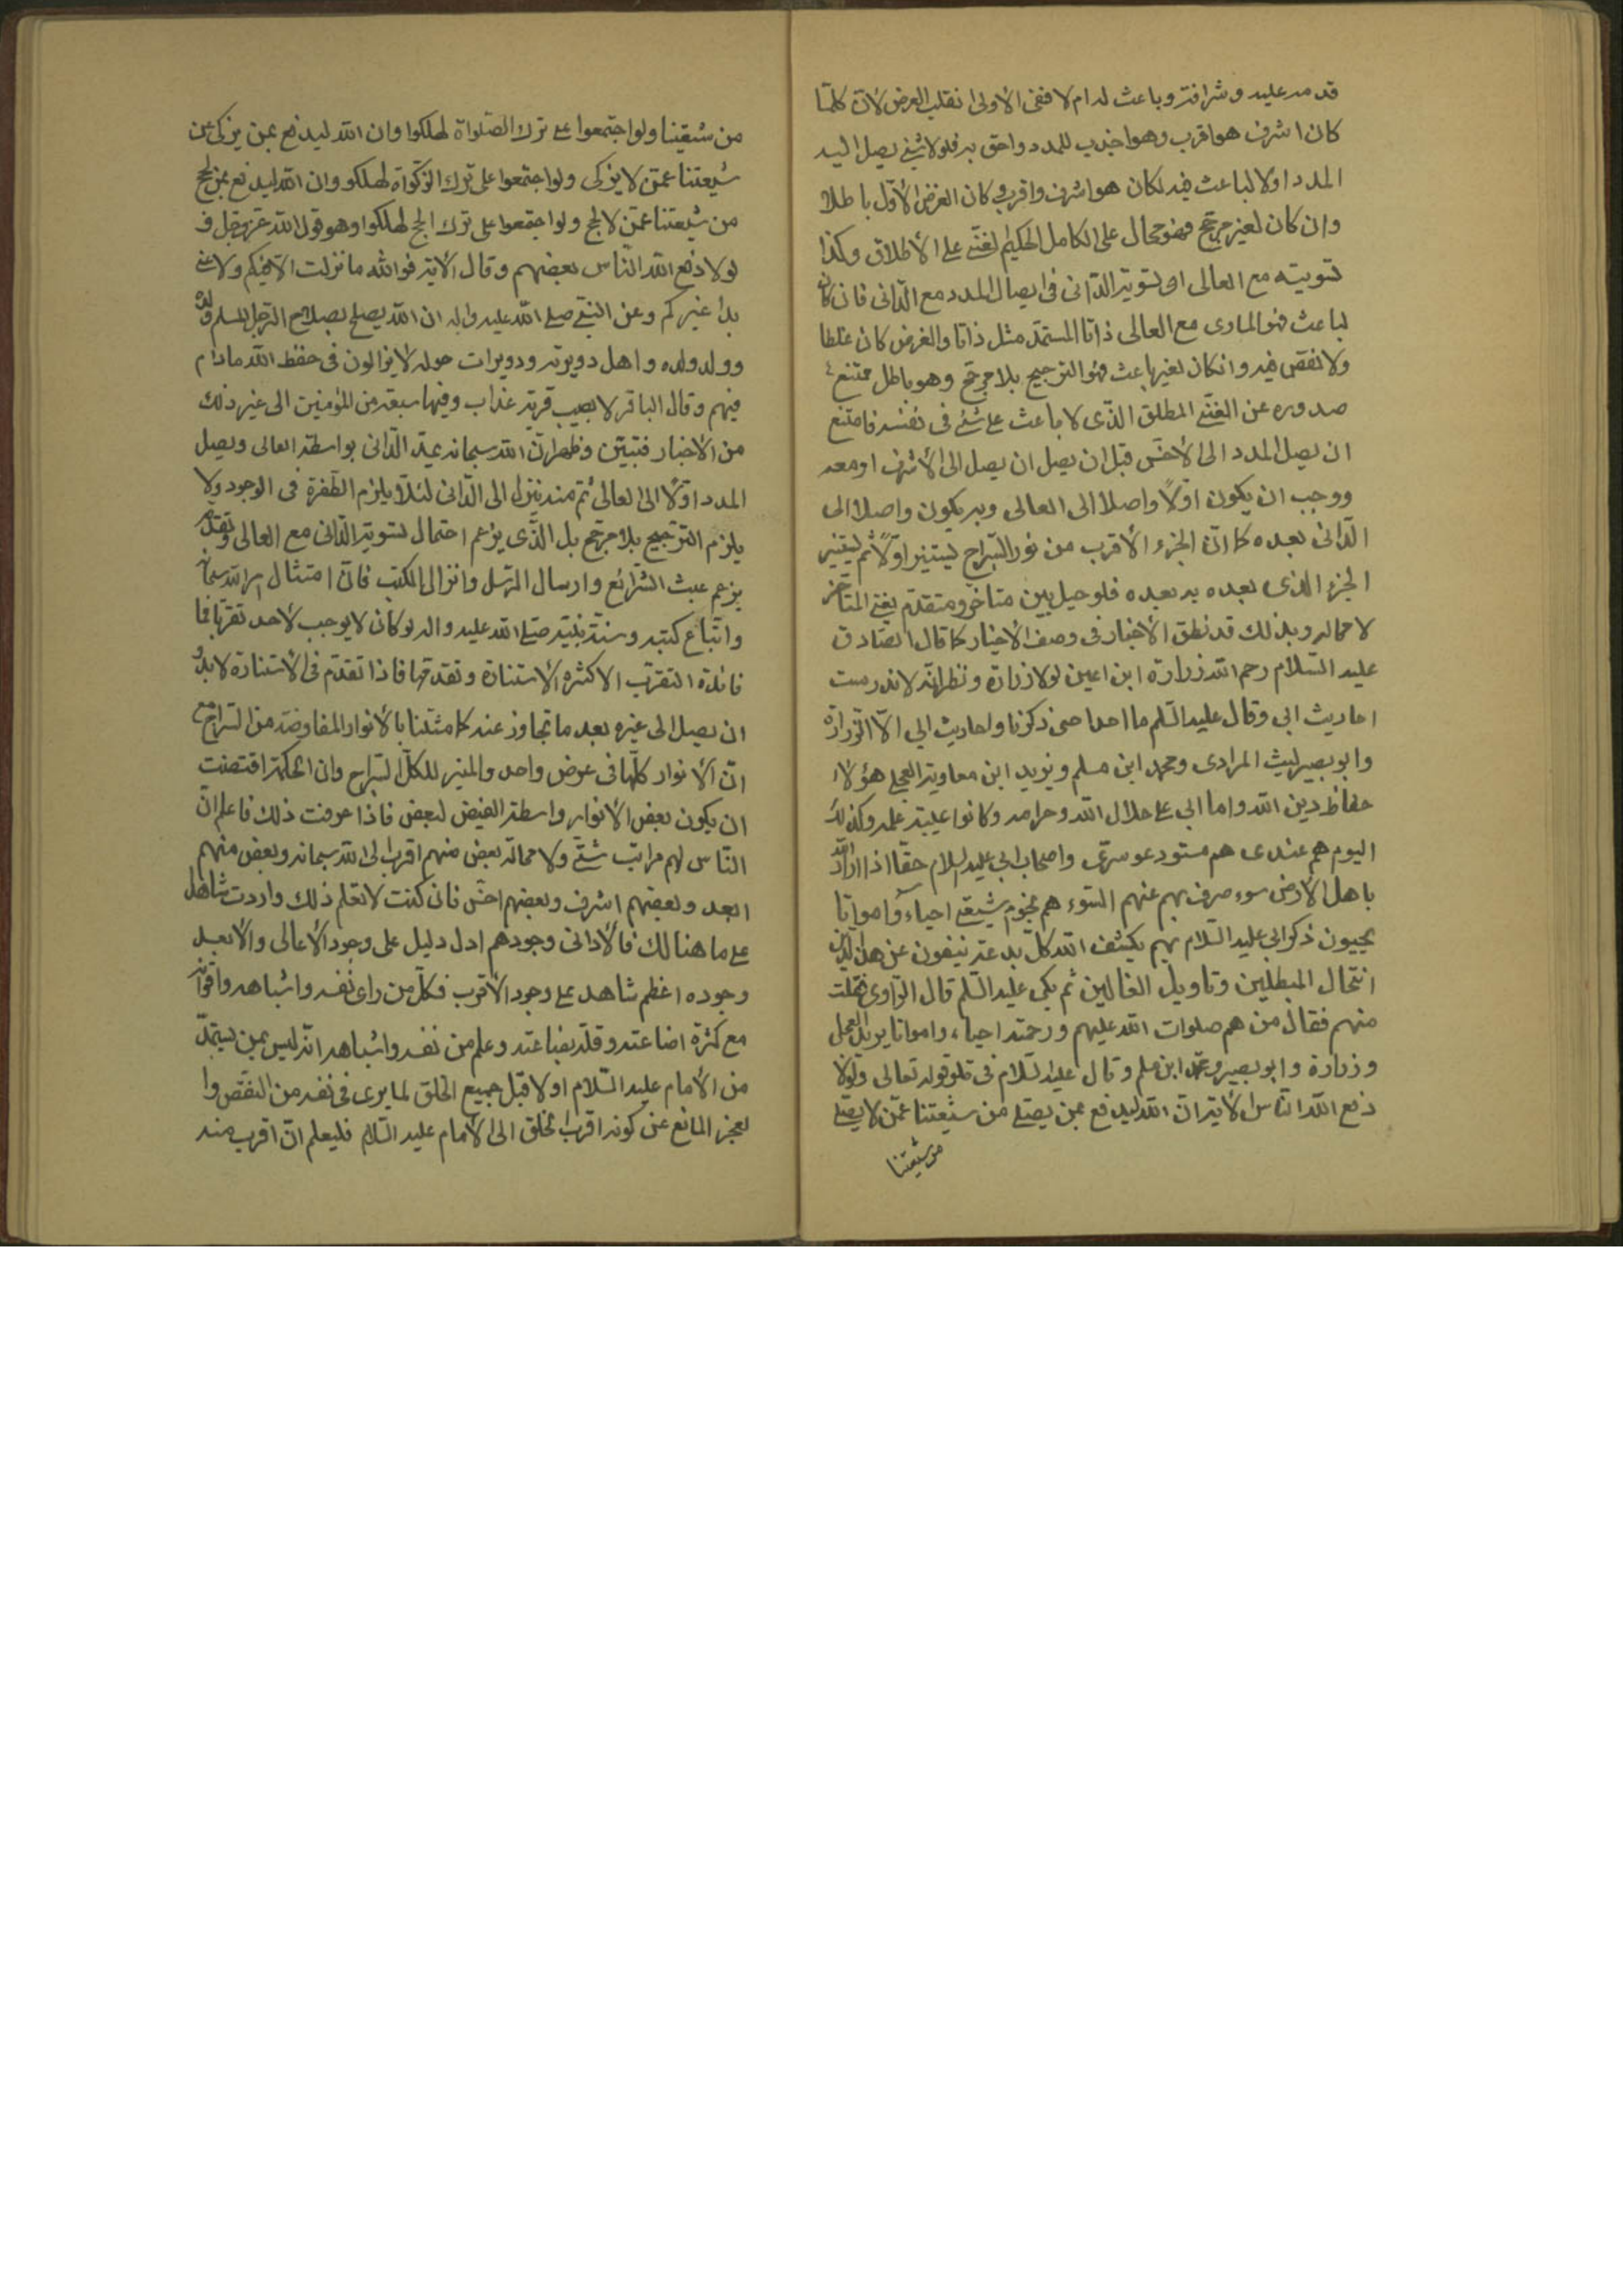 قدمه عليه و شرافته وباعث له ام لا ففى الاولى انقلب الغرض لان كلما
كان اشرف هو اقرب وهو اجذب للمدد واحق به فلولا شئ يصل اليه
المدد اولا لباعث فيه لكان هو اشرف واقرب وكان الغرض الاول باطلا
وان كان لغير مرجح فهو محال على الكامل الحكيم الغنى على الاطلاق وكذا
تسويته مع العالى او تسوية الدانى فى ايصال المدد مع الدانى فان كان
لباعث فهو المساوى مع العالى ذاتا المستمد مثل ذاتا والغرض كان غلطا
ولا نقص فيه وانكان لغير باعث فهو الترجيح بلا مرجح وهو باطل ممتنع
صدوره عن الغنى المطلق الذى لا باعث على شئ فى نفسه فامتنع
ان يصل المدد الى الاخس قبل ان يصل ان يصل الى الاشرف او معه
ووجب ان يكون اولا واصلا الى العالى وبه يكون واصلا الى
الدانى بعده كما ان الجزء الاقرب من نور السراج ليستنير اولا ثم ليستنير
الجزء الذى بعده به بعده فلو حيل بين متاخر ومتقدم يغنى المتاخر
لا محاله وبذلك قد نطق الاخبار فى وصف الاخيار كما قال الصادق
عليه السلام رحم الله زرارة ابن اعين لولا زرارة ونظرائه لاندرست
احاديث ابى وقال عليه السلم ما احد احيى ذكرنا واحاديث ابى الا زرارة
وابو بصير ليث المرادى ومحمد ابن مسلم وبريد ابن معاوية العجلى هؤلاء
حفاظ دين الله وامنا ابى على حلال الله وحرامه وكانوا عيبة علمه وكذلك
اليوم هم عندى هم مستودعو سرى واصحاب ابى عليه السلام حقا اذا اراد الله
باهل الارض سوء صرف بهم عنهم السوء هم نجوم شيعتى احياء وامواتا
يحيون ذكر ابى عليه السلام بهم يكشف الله كل بدعة ينفون عن هذا الدين
انتحال المبطلين وتاويل الغالين ثم بكى عليه السلم قال الراوى فقلت
منهم فقال من هم صلوات الله عليهم ورحمته احياء وامواتا بريد العجلى
وزرارة وابو بصير ومحمد ابن مسلم وقال عليه السلام فى قوله تعالى ولولا
دفع الله الناس الاية ان الله ليدفع بمن يصلى من شيعتنا عمن لا يصلى
من شيعتنا
من شيعتنا ولو اجتمعوا على ترك الصلواة لهلكوا وان الله ليدفع بمن يزكى من
شيعتنا عمن لا يزكى ولو اجتمعوا على ترك الزكوة لهلكو وان الله ليدفع بمن يحج
من شيعتنا عمن لا يحج ولو اجتمعوا على ترك الحج لهلكوا وهو قول الله عز وجل و
لولا دفع الله الناس بعضهم وقال الاية فوالله ما نزلت الا فيكم ولا عنى
بها غيركم وعن النبى صلى الله عليه واله ان الله يصلح بصلاح الرجل المسلم ولده
وولد ولده واهل دويرته ودويرات حوله لا يزالون فى حفظ الله مادام
فيهم وقال الباقر لا يصيب قرية عذاب وفيها سبعة من المؤمنين الى غير ذلك
من الاخبار فتبين وظهر ان الله سبحانه يمد الدانى بواسطة العالى ويصل
المدد اولا الى العالى ثم منه ينزل الى الدانى لئلا يلزم الطفرة فى الوجود ولا
يلزم الترجيح بلا مرجح بل الذى يزعم احتمال تسوية الدانى مع العالى وتقدمه
يزعم عبث الشرائع وارسال الرسل وانزال الكتب فان امتثال امر الله سبحانه
واتباع كتبه وسنة نبيه صلى الله عليه واله لو كان لا يوجب لاحد تقربا فما
فائدة التقرب الا كثرة الاستنارة وتقدمها فاذا تقدم فى الاستنارة لابد
ان يصل الى غيره بعد ما تجاوز عنه كما مثلنا بالانوار المفاوضة من السراج مع
ان الانوار كلها فى عرض واحد والمنير للكل السراج وان الحكمة اقتضت
ان يكون بعض الانوار واسطة الفيض لبعض فاذا عرفت ذلك فاعلم ان
الناس لهم مراتب شتى ولا محالة بعض منهم اقرب الى الله سبحانه وبعض منهم
ابعد وبعضهم اشرف وبعضهم اخس فان كنت لا تعلم ذلك واردت شاهدا
على ما هنالك فالادانى وجودهم ادل دليل على وجود الاعالى والابعد
وجوده اعظم شاهد على وجود الاقرب فكل من راى نفسه واشباهه واقرانه
مع كثرة اضاعته وقلة بضاعته وعلم من نفسه واشباهه انه ليس بمن يستمد
من الامام عليه السلام اولا قبل جميع الخلق لما يرى فى نفسه من النقص وا
لعجز المانع عن كونه اقرب الخلق الى الامام عليه السلام فليعلم ان اقرب منه